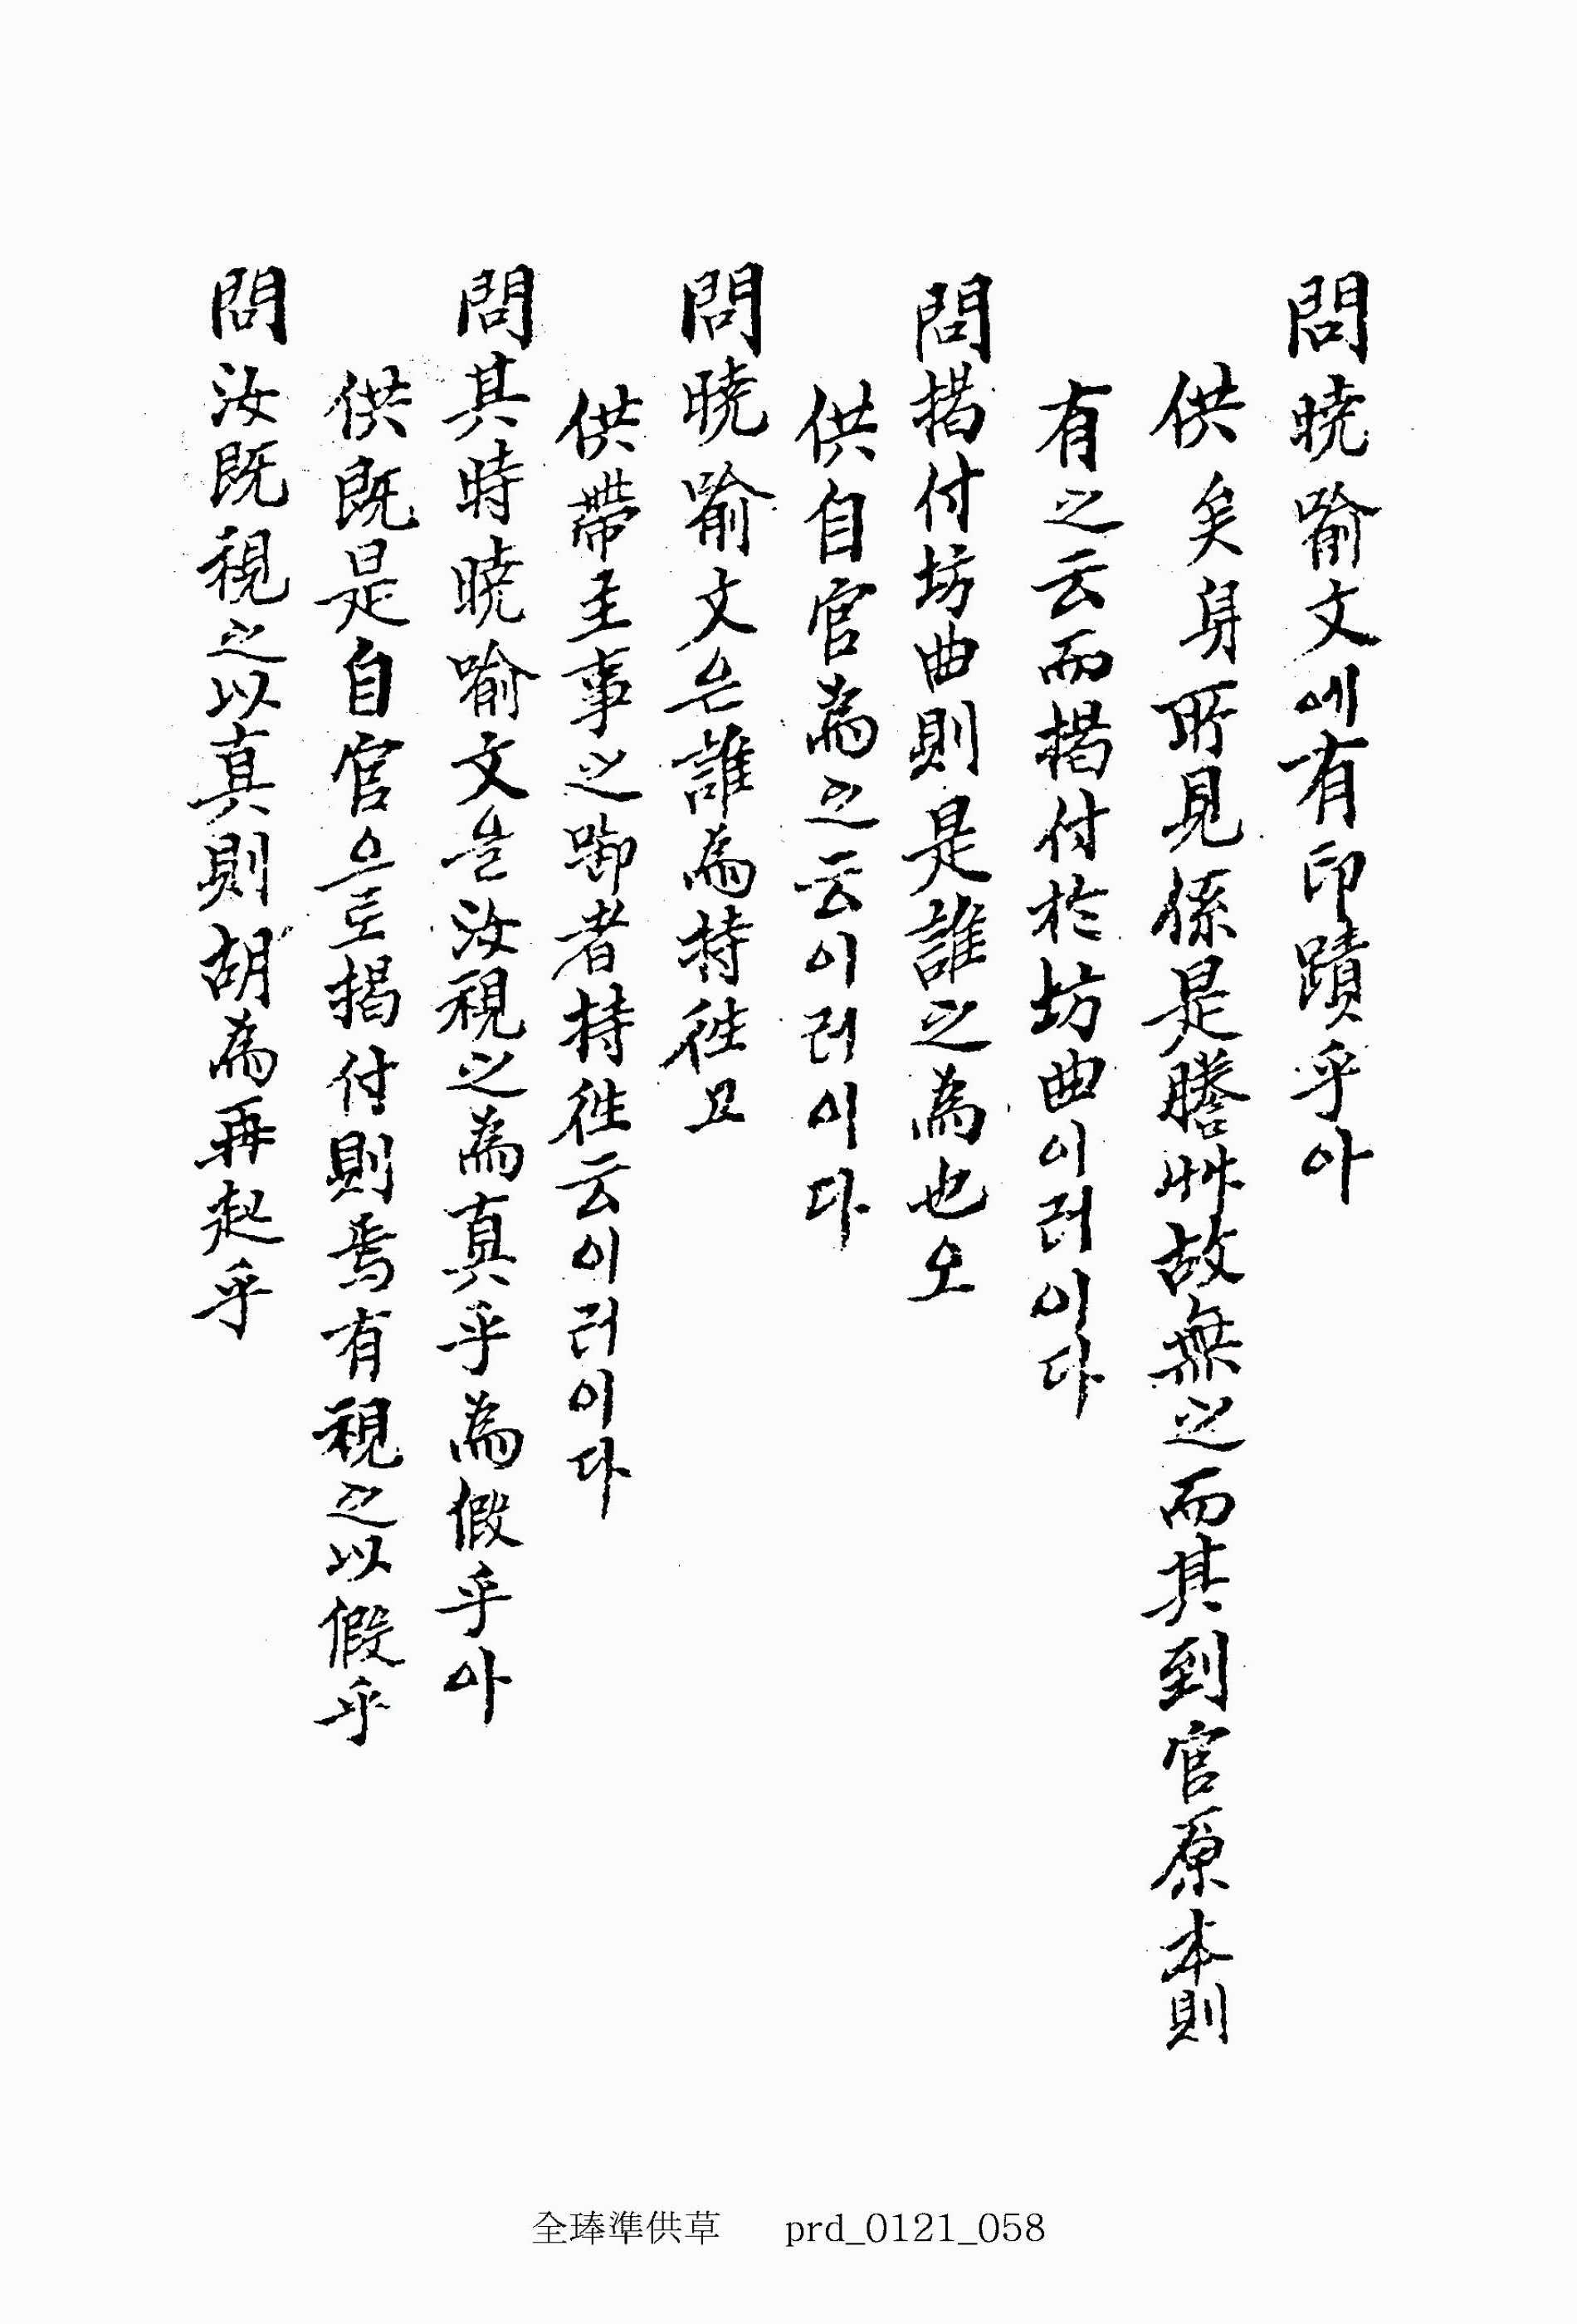 問曉喻文에有印蹟乎아
供矣身所見係是謄艸故無之而其到官原本則
有之云而揭付於坊曲이러이다
問揭付坊曲則是誰之為也오
供自官為之云이러이다
問曉喻文은誰為持徃고
供帶主事之啣者持徃云이러이다
問其時曉喻文을汝視之為真乎為假乎아
供既是自官으로揭付則焉有視之以假乎
問汝既視之以真則胡為再起乎
全琫準供草 prd_0121_058